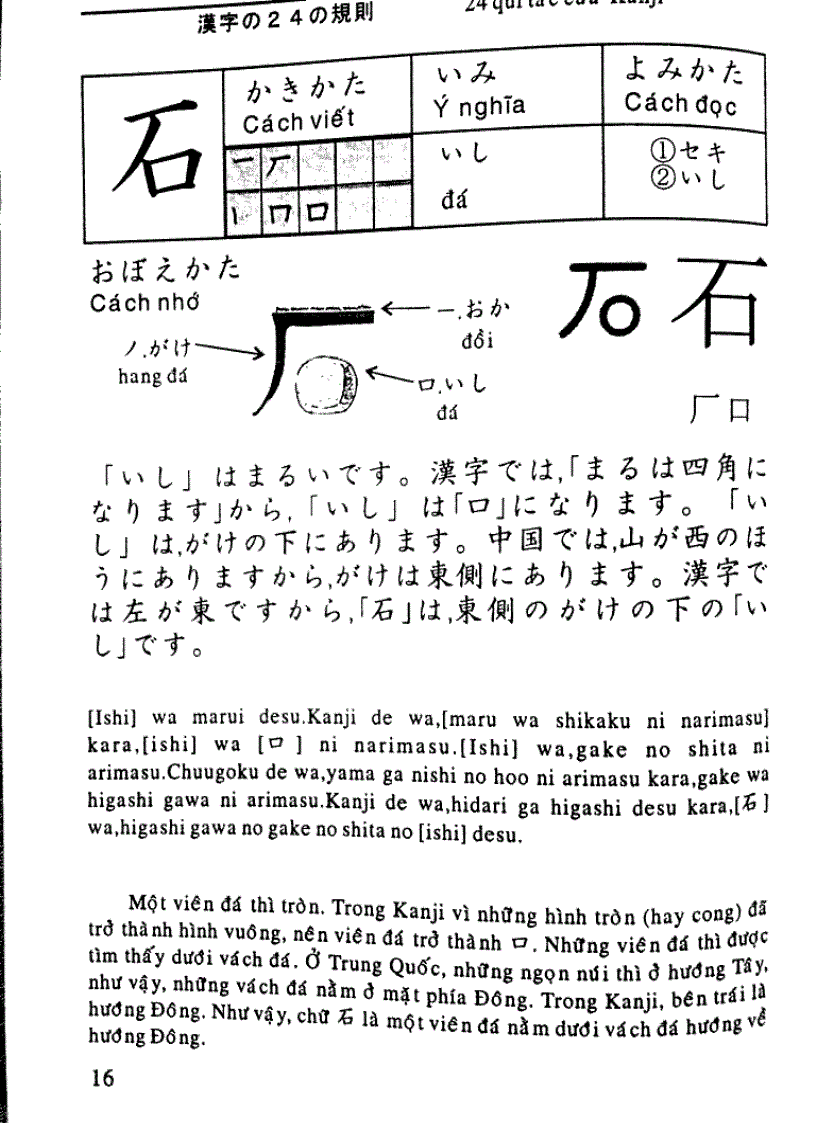 漢字の２４の規則
24 qui tắc của Kanji
石
かきかた
Cách viết
いみ
Ý nghĩa
よみかた
Cách đọc
いし
đá
①セキ
②いし
おぼえかた
Cách nhớ
一.おか
đồi
ノ.がけ
hang đá
口.いし
đá
石
厂口
「いし」はまるいです。漢字では,「まるは四角に
なります」から,「いし」は「口」になります。「い
し」は,がけの下にあります。中国では,山が西のほ
うにありますから,がけは東側にあります。漢字で
は左が東ですから,「石」は,東側のがけの下の「い
し」です。
[Ishi] wa marui desu.Kanji de wa,[maru wa shikaku ni narimasu]
kara,[ishi] wa [口 ] ni narimasu.[Ishi] wa,gake no shita ni
arimasu.Chuugoku de wa,yama ga nishi no hoo ni arimasu kara,gake wa
higashi gawa ni arimasu.Kanji de wa,hidari ga higashi desu kara,[石 ]
wa,higashi gawa no gake no shita no [ishi] desu.
Một viên đá thì tròn. Trong Kanji vì những hình tròn (hay cong) đã
trở thành hình vuông, nên viên đá trở thành 口. Những viên đá thì được
tìm thấy dưới vách đá. Ở Trung Quốc, những ngọn núi thì ở hướng Tây,
như vậy, những vách đá nằm ở mặt phía Đông. Trong Kanji, bên trái là
hướng Đông. Như vậy, chữ 石 là một viên đá nằm dưới vách đá hướng về
hướng Đông.
16